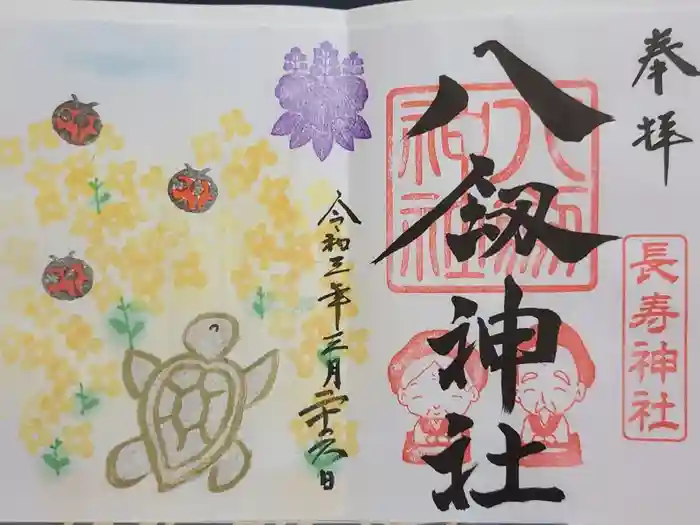 奉拝
長寿神社
八剱神社
八剱神社
令和三年三月二十六日